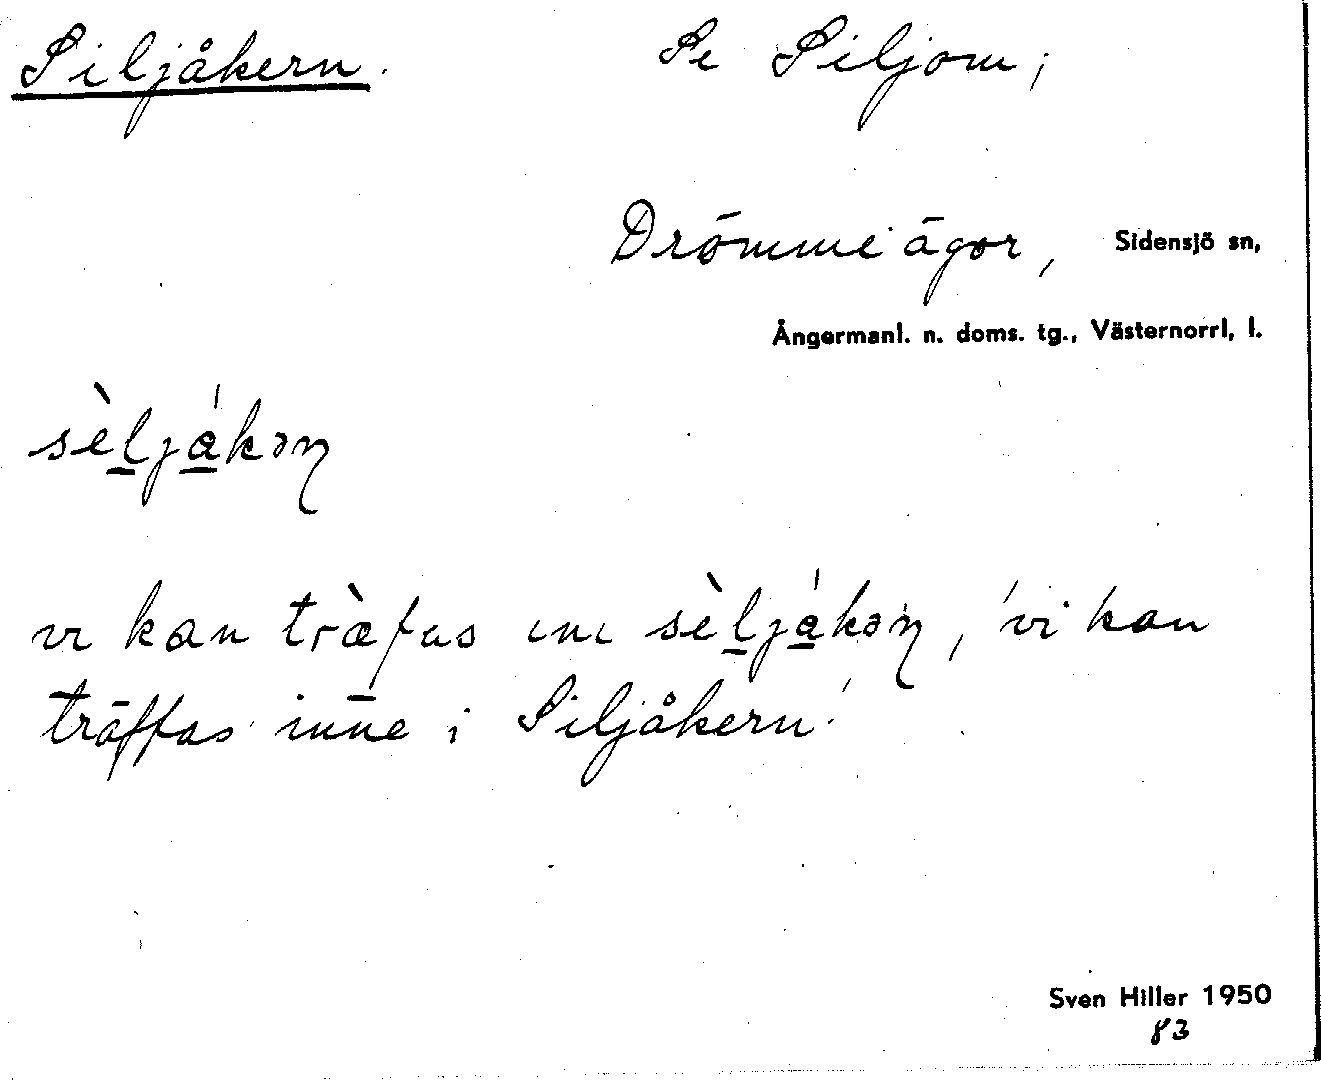 Siljåkern. Se Siljom;
Drömme ägor, Sidensjö sn,
Ångermanl. n. doms. tg., Västernorrl, l.
sèljákəɳ
vi kan tràfas ini sèljákəɳ, 'vi kan
träffas inne i Siljåkern'
Sven Hiller 1950
83